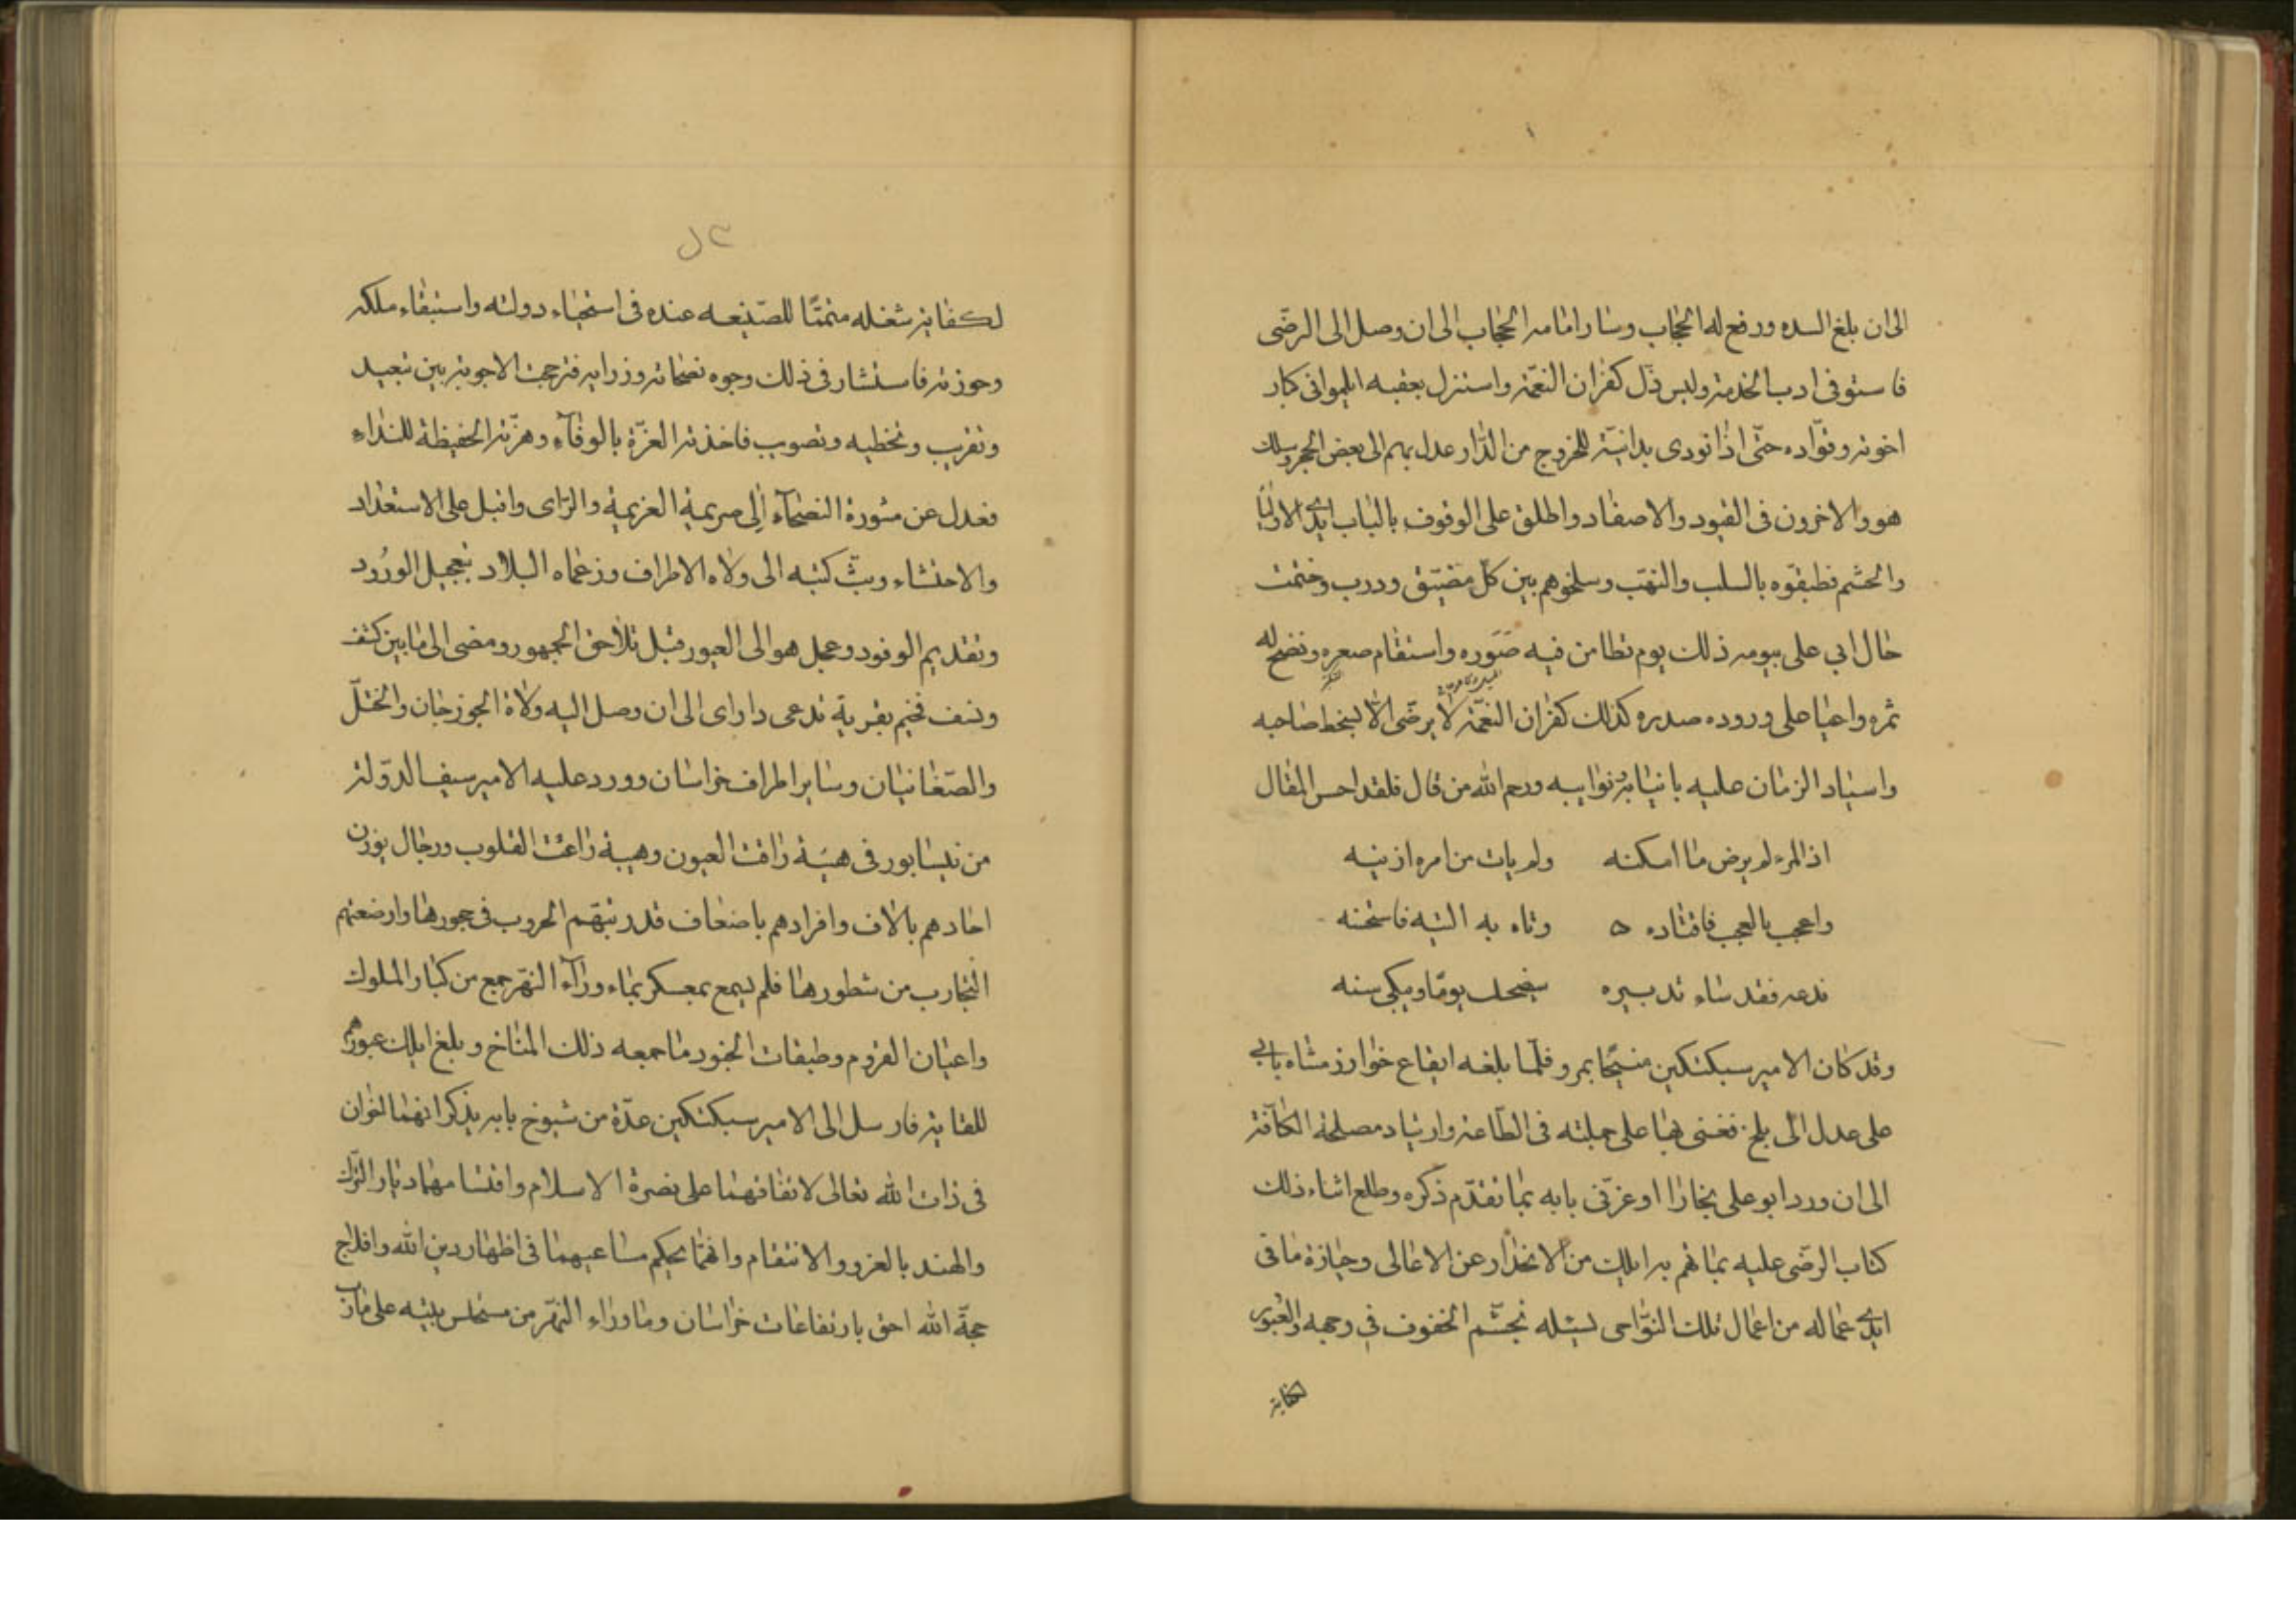 الى ان بلغ السده ورفع له الحجاب وسار امامه الحجاب الى ان وصل الى الرضى
فاستوفى ادب الخدمة ولبس ذل كفران النعمة واستنزل بعقبه ايلمو انى كبار
اخوته وقواده حتى اذا نودى بدابته للخروج من الدار عدل بهم الى بعض الحجر وسلك
هو والاخرون فى القيود والاصفاد واطلق على الوقوف بالباب ايدى الاوليا
والحشم فطبقوه بالسلب والنهب وسلخوهم بين كل مضيق ودرب وختمت
حال ابي على بيومه ذلك يوم تطامن فيه صَوَره واستقام صعره ونضج له
ثمره واعيا على وروده صدره كذلك كفران النعمة لا يرضى الا بسخط صاحبه
واستياد الزمان عليه بانيابه نوايبه ورحم الله من قال فلقد احسن المقال
اذ المرء لم يرض ما امكنه ولم يات من امره ازينه
واعجب بالعجب فاقتاده ه وتاه به التيه فاستحنه
فدعه فقد ساء تدبيره سيضحك يوما ويبكي سنه
وقد كان الامير سبكتكين منيخا بمرو فلما بلغه ايقاع خوارزمشاه بابي
على عدل الى بلخ فغنى بها على جملته فى الطاعة وارتياد مصلحة الكافة
الى ان ورد ابو على بخارا او عزتى بابه بما تقدم ذكره وطلع اثناء ذلك
كتاب الرضى عليه بما هم به ايلك من الانحدار عن الاعالى وحيازة ما فى
ايدى عماله من اعمال تلك النواحى يسئله تجشم الخفوف في وجهه والعبور
لكفايته
لكفاية شغله متمتا للصنيعه عنده فى استحياء دولته واستبقاء ملكه
وحوزته فاستشار فى ذلك وجوه نصحائه وزرايه فترجحت الاجوبة بين تبعيد
وتقريب وتخطيه وتصويب فاخذته العزة بالوفاء وهزته الحفيظة للنداء
فعدل عن مشورة النصحاء الى صريمة العزيمة والراى واقبل على الاستعداد
والاحتشاء وبث كتبه الى ولاه الاطراف وزعماه البلاد بتعجيل الورود
وتقديم الوفود وعجل هو الى العبور قبل تلاحق الجمهور ومضى الى ما بين كشف
ونسف فخيم بقرية تدعى داراى الى ان وصل اليه ولاة الجوزجان والختل
والصغانيان وساير اطراف خراسان وورد عليه الامير سيف الدولة
من نيسابور فى هيئة راقت العيون وهيبة راعت القلوب ورجال يوزن
احادهم بالاف وافرادهم باضعاف قد ربتهم الحروب فى حجورها وارضعتهم
التجارب من شطورها فلم يسمع بمعسكر بماء وراء النهر جمع من كبار الملوك
واعيان القروم وطبقات الجنود ما جمعه ذلك المناخ وبلغ ايلك عبورهم
للقايه فارسل الى الامير سبكتكين عدة من شيوخ بابه يذكر انهما اخوان
فى ذات الله تعالى لاتفاقهما على نصرة الاسلام واقتسامهما ديار الترك
والهند بالغزو والانتقام وانهما بحكم مساعيهما فى اظهار دين الله وافلاج
حجة الله احق بارتفاعات خراسان وما وراء النهر من مستحلس بيته على مارب